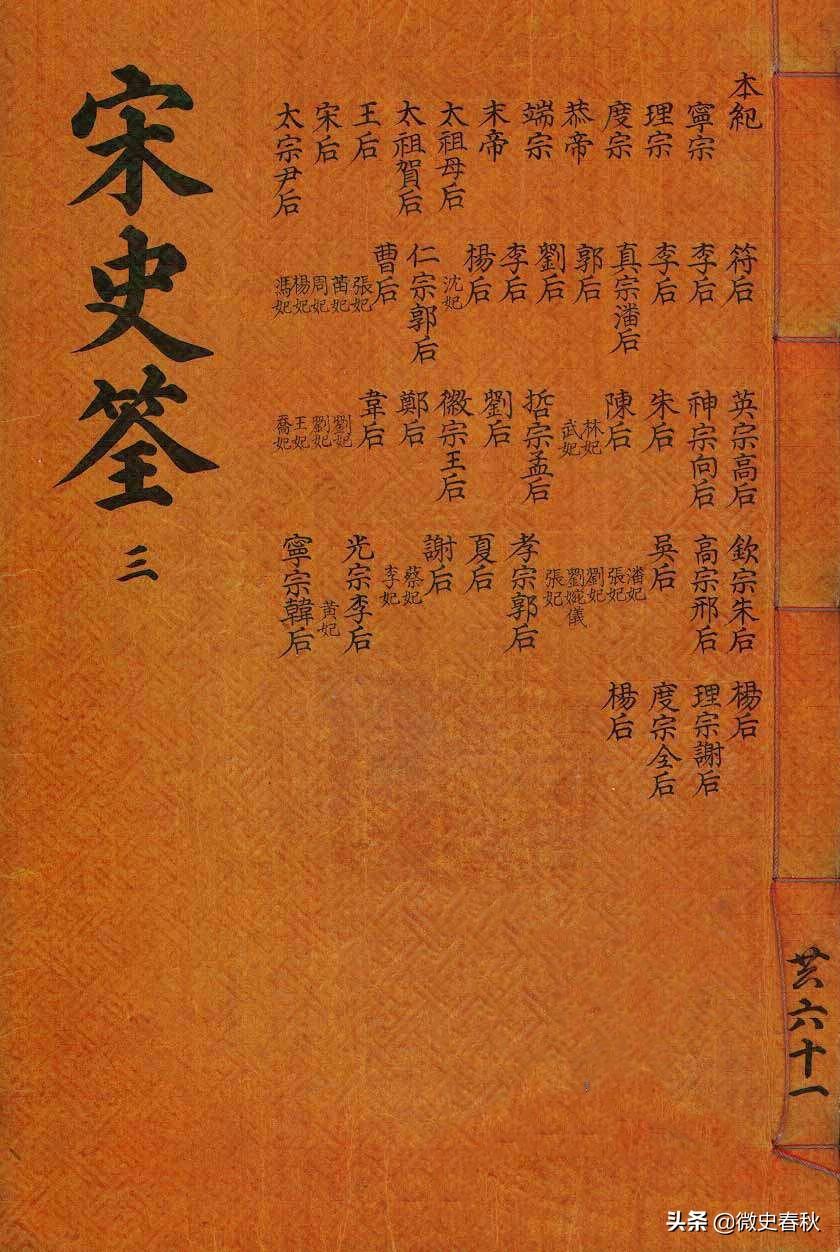 宋史筌 三
本紀
寧宗
理宗
度宗
恭帝
端宗
末帝
太祖母后
太祖賀后
王后
宋后
太宗尹后
符后
李后
李后
真宗潘后
郭后
劉后
李后
楊后
沈妃
仁宗郭后
曹后
張妃
苗妃
周妃
楊妃
馮妃
英宗高后
神宗向后
朱后
陳后
林妃
武妃
哲宗孟后
劉后
徽宗王后
鄭后
韋后
劉妃
劉妃
王妃
喬妃
欽宗朱后
高宗邢后
吳后
潘妃
張妃
劉妃
劉婉儀
張妃
孝宗郭后
夏后
謝后
蔡妃
李妃
光宗李后
黃妃
寧宗韓后
楊后
理宗謝后
度宗全后
楊后
共六十一
头条 @微史春秋